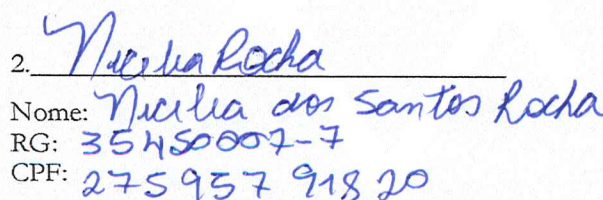 2. Nicelia Rocha
Nome: Nicelia dos Santos Rocha
RG: 35450007-7
CPF: 275957 918 20